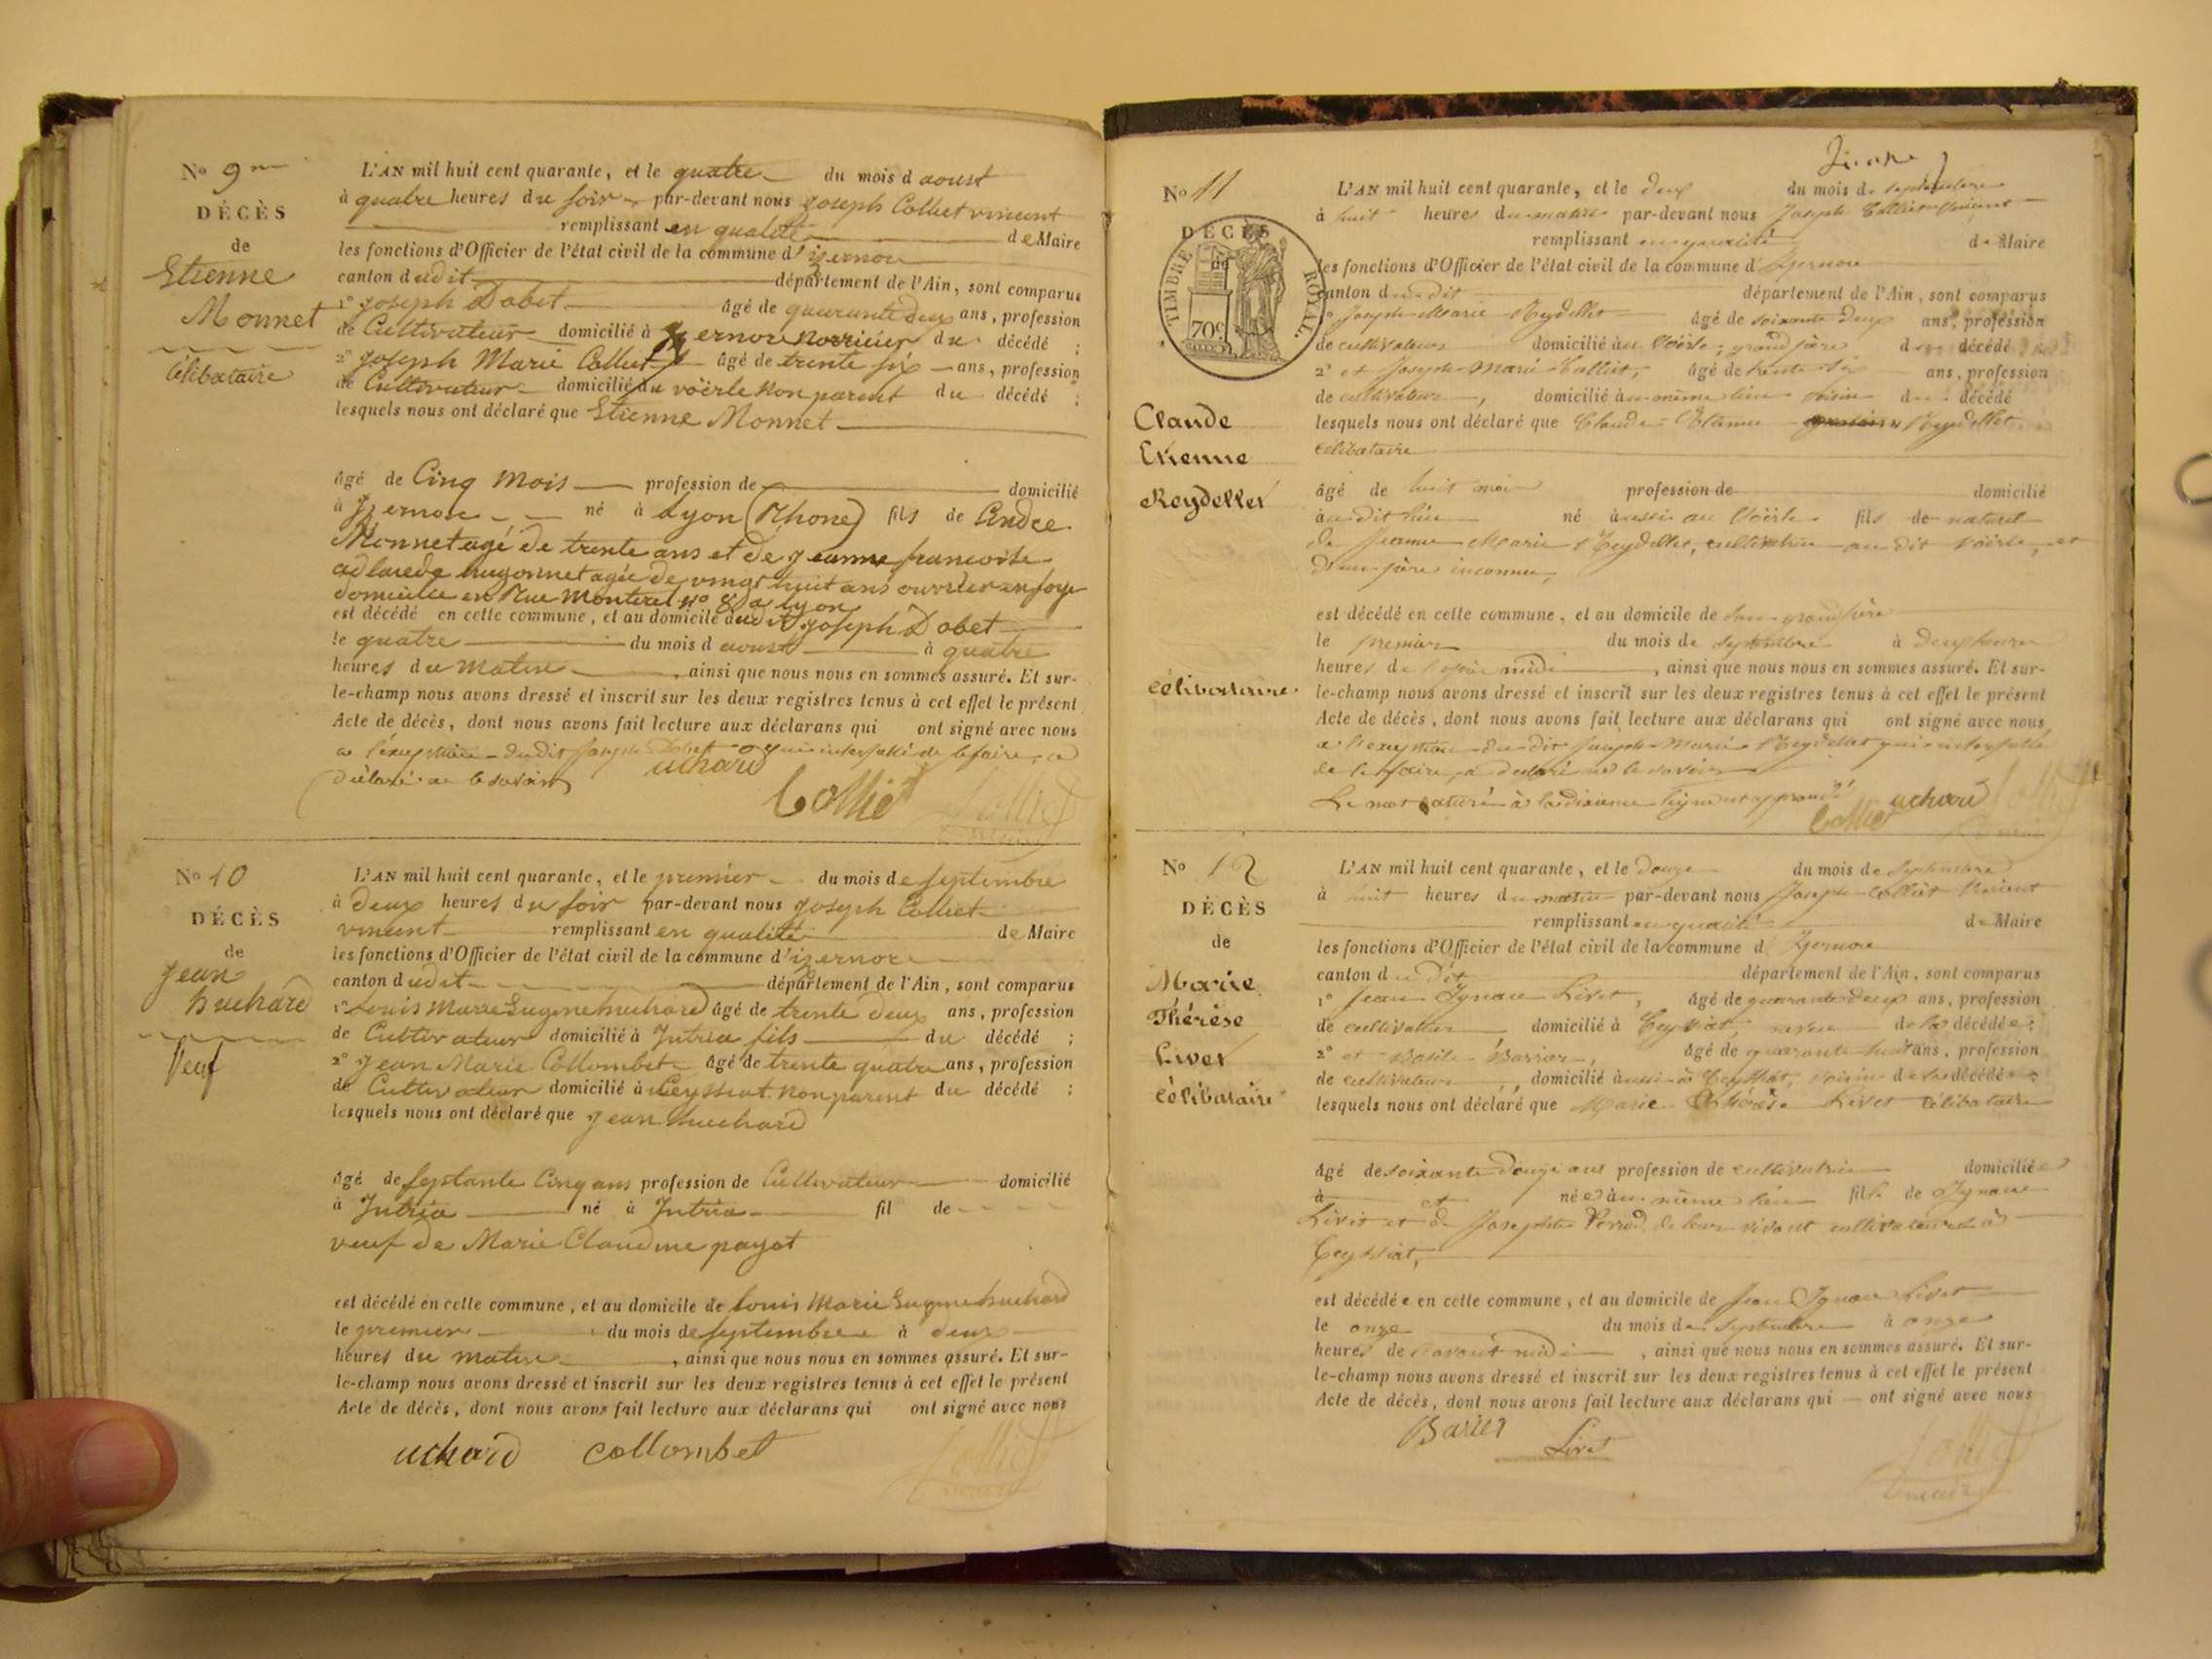 No 9
DÉCÈS
de
Etienne
Monnet
Célibataire
L'AN mil huit cent quarante, et le quatre du mois d aoust
à quatre heures du soir par-devant nous joseph Colliet vincent
remplissant en qualité de Maire
les fonctions d'Officier de l'état civil de la commune d'izernore
canton dudit département de l'Ain, sont comparus
1° joseph Dobet âgé de quarante deux ans, profession
de Cultivateur domicilié à Izernore norricier du décédé ;
2° joseph Marie Colliet âgé de trente six ans, profession
de Cultivateur domicilié au voërle non parent du décédé ;
lesquels nous ont déclaré que Etienne Monnet
âgé de Cinq mois profession de domicilié
à Izernore né à Lyon (Rhone) fils de André
Monnet agé de trente ans et de jeanne francoise
hugonnet agée de vingt huit ans
domicilié en Rue Monterel n° 8 a lyon
est décédé en cette commune, et au domicile dudit joseph Dobet
le quatre du mois d aoust à quatre
heures du matin, ainsi que nous nous en sommes assuré. Et sur-
le-champ nous avons dressé et inscrit sur les deux registres tenus à cet effet le présent
Acte de décès, dont nous avons fait lecture aux déclarans qui ont signé avec nous
a l'exeption dudit joseph Dobet qui interpellé de le faire, a
déclaré ne le savoir
uchard
Colliet
No 10
DÉCÈS
de
jean
huchard
Veuf
L'AN mil huit cent quarante, et le premier du mois de septembre
à deux heures du soir par-devant nous joseph Colliet
vincent remplissant en qualité de Maire
les fonctions d'Officier de l'état civil de la commune d'izernore
canton dudit département de l'Ain, sont comparus
1° Louis Marie Eugene huchard âgé de trente deux ans, profession
de Cultivateur domicilié à Intria fils du décédé ;
2° jean Marie Collombet âgé de trente quatre ans, profession
de Cultivateur domicilié à Ceyssiat non parent du décédé ;
lesquels nous ont déclaré que jean huchard
âgé de septante Cinq ans profession de Cultivateur domicilié
à Intria né à Intria fil de
veuf de Marie Claudine payot
est décédé en cette commune, et au domicile de Louis Marie Eugene huchard
le premier du mois de septembre à deux
heures du matin, ainsi que nous nous en sommes assuré. Et sur-
le-champ nous avons dressé et inscrit sur les deux registres tenus à cet effet le présent
Acte de décès, dont nous avons fait lecture aux déclarans qui ont signé avec nous
uchard collombet
No 11
DÉCÈS
de
TIMBRE ROYAL.
70c
Claude
Etienne
Reydellet
célibataire
L'AN mil huit cent quarante, et le deux du mois de septembre
à huit heures du matin par-devant nous Joseph Colliet Vincent
remplissant en qualité de Maire
les fonctions d'Officier de l'état civil de la commune d'Izernore
canton dudit département de l'Ain, sont comparus
1° Joseph Marie Reydellet âgé de soixante deux ans, profession
de cultivateur domicilié au Voërle, grand père du décédé
2° et Joseph Marie Colliet, âgé de trente six ans, profession
de cultivateur, domicilié au même lieu voisin du décédé
lesquels nous ont déclaré que Claude Etienne Reydellet
célibataire
âgé de huit mois profession de domicilié
audit lieu né aussi au Voërle fils de naturel
de Jeanne Marie Reydellet, cultivatrice au dit Voërle, et
d'un père inconnu,
est décédé en cette commune, et au domicile de son grand père
le premier du mois de septembre à deux heures
heures de l'après midi, ainsi que nous nous en sommes assuré. Et sur-
le-champ nous avons dressé et inscrit sur les deux registres tenus à cet effet le présent
Acte de décès, dont nous avons fait lecture aux déclarans qui ont signé avec nous
a l'exception du dit Joseph Marie Reydellet qui interpellé
de le faire, a déclaré ne le savoir
Le mot raturé à la dixieme ligne est approuvé
Colliet uchard
No 12
DÉCÈS
de
Marie
Thérèse
Livet
célibataire
L'AN mil huit cent quarante, et le douze du mois de Septembre
à huit heures du matin par-devant nous Joseph Colliet Vincent
remplissant en qualité de Maire
les fonctions d'Officier de l'état civil de la commune d'Izernore
canton du dit département de l'Ain, sont comparus
1° Jean Ignace Livet, âgé de quarante deux ans, profession
de cultivateur, domicilié à Ceyssiat, neveu de la décédée ;
2° et Basile Barrier, âgé de quarante huit ans, profession
de cultivateur, domicilié aussi à Ceyssiat, voisin de la décédée ;
lesquels nous ont déclaré que Marie Thérèse Livet célibataire
âgé de soixante douze ans profession de cultivatrice domiciliée
à et née au même lieu fille de Ignace
Livet et de Josephte Perrod, de leur vivant cultivateurs à
Ceyssiat,
est décédée en cette commune, et au domicile de Jean Ignace Livet
le onze du mois de Septembre à onze
heures de l'avant midi, ainsi que nous nous en sommes assuré. Et sur-
le-champ nous avons dressé et inscrit sur les deux registres tenus à cet effet le présent
Acte de décès, dont nous avons fait lecture aux déclarans qui ont signé avec nous
Barier
Livet